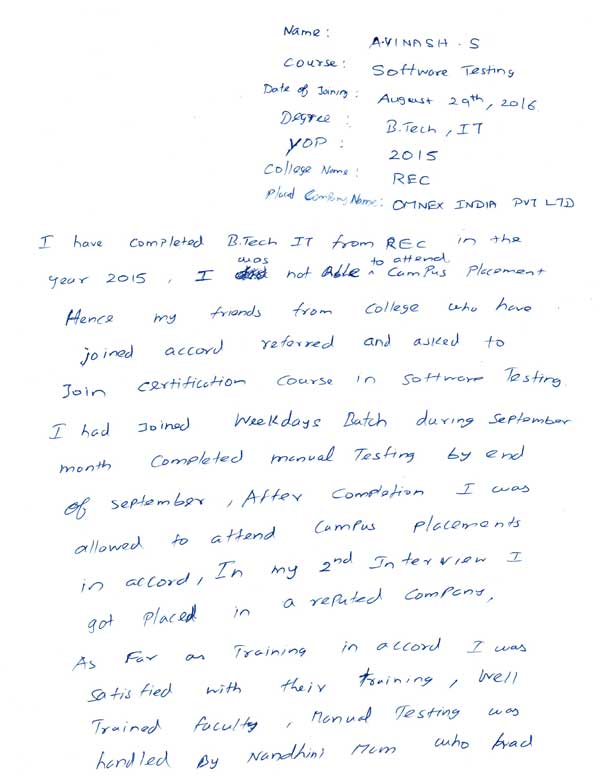 Name: AVINASH . S
Course: Software Testing
Date of Joining: August 29th, 2016
Degree: B.Tech, IT
YOP: 2015
College Name: REC
Placed Company Name: OMNEX INDIA PVT LTD
I have completed B.Tech IT from REC in the
year 2015, I was not Able to attend Campus Placement
Hence my friends from college who have
joined accord referred and asked to
Join certification Course in Software Testing.
I had Joined Weekdays Batch during September
month Completed manual Testing by end
of september, After Completion I was
allowed to attend Campus placements
in accord, In my 2nd Interview I
got placed in a reputed Company,
As Far as Training in accord I was
Satisfied with their training, Well
Trained faculty, Manual Testing was
handled By Nandhini Mam who